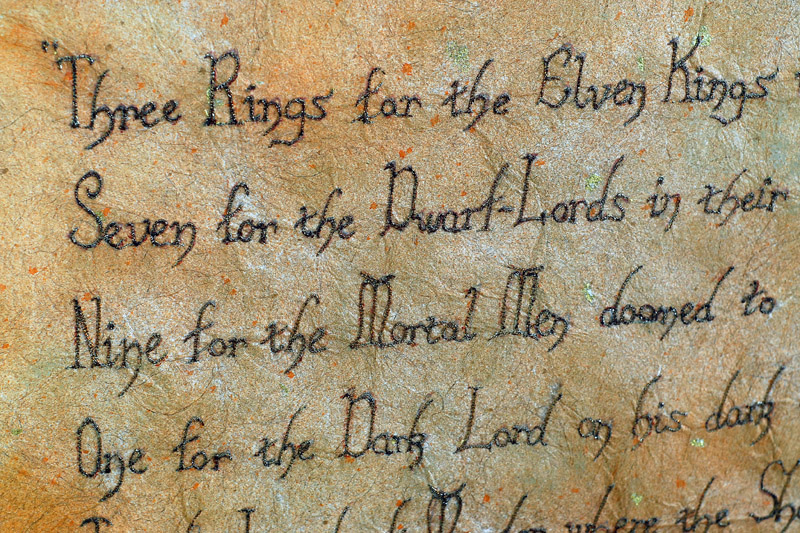 "Three Rings for the Elven Kings
Seven for the Dwarf-Lords in their
Nine for the Mortal Men doomed to
One for the Dark Lord on his dark
where the